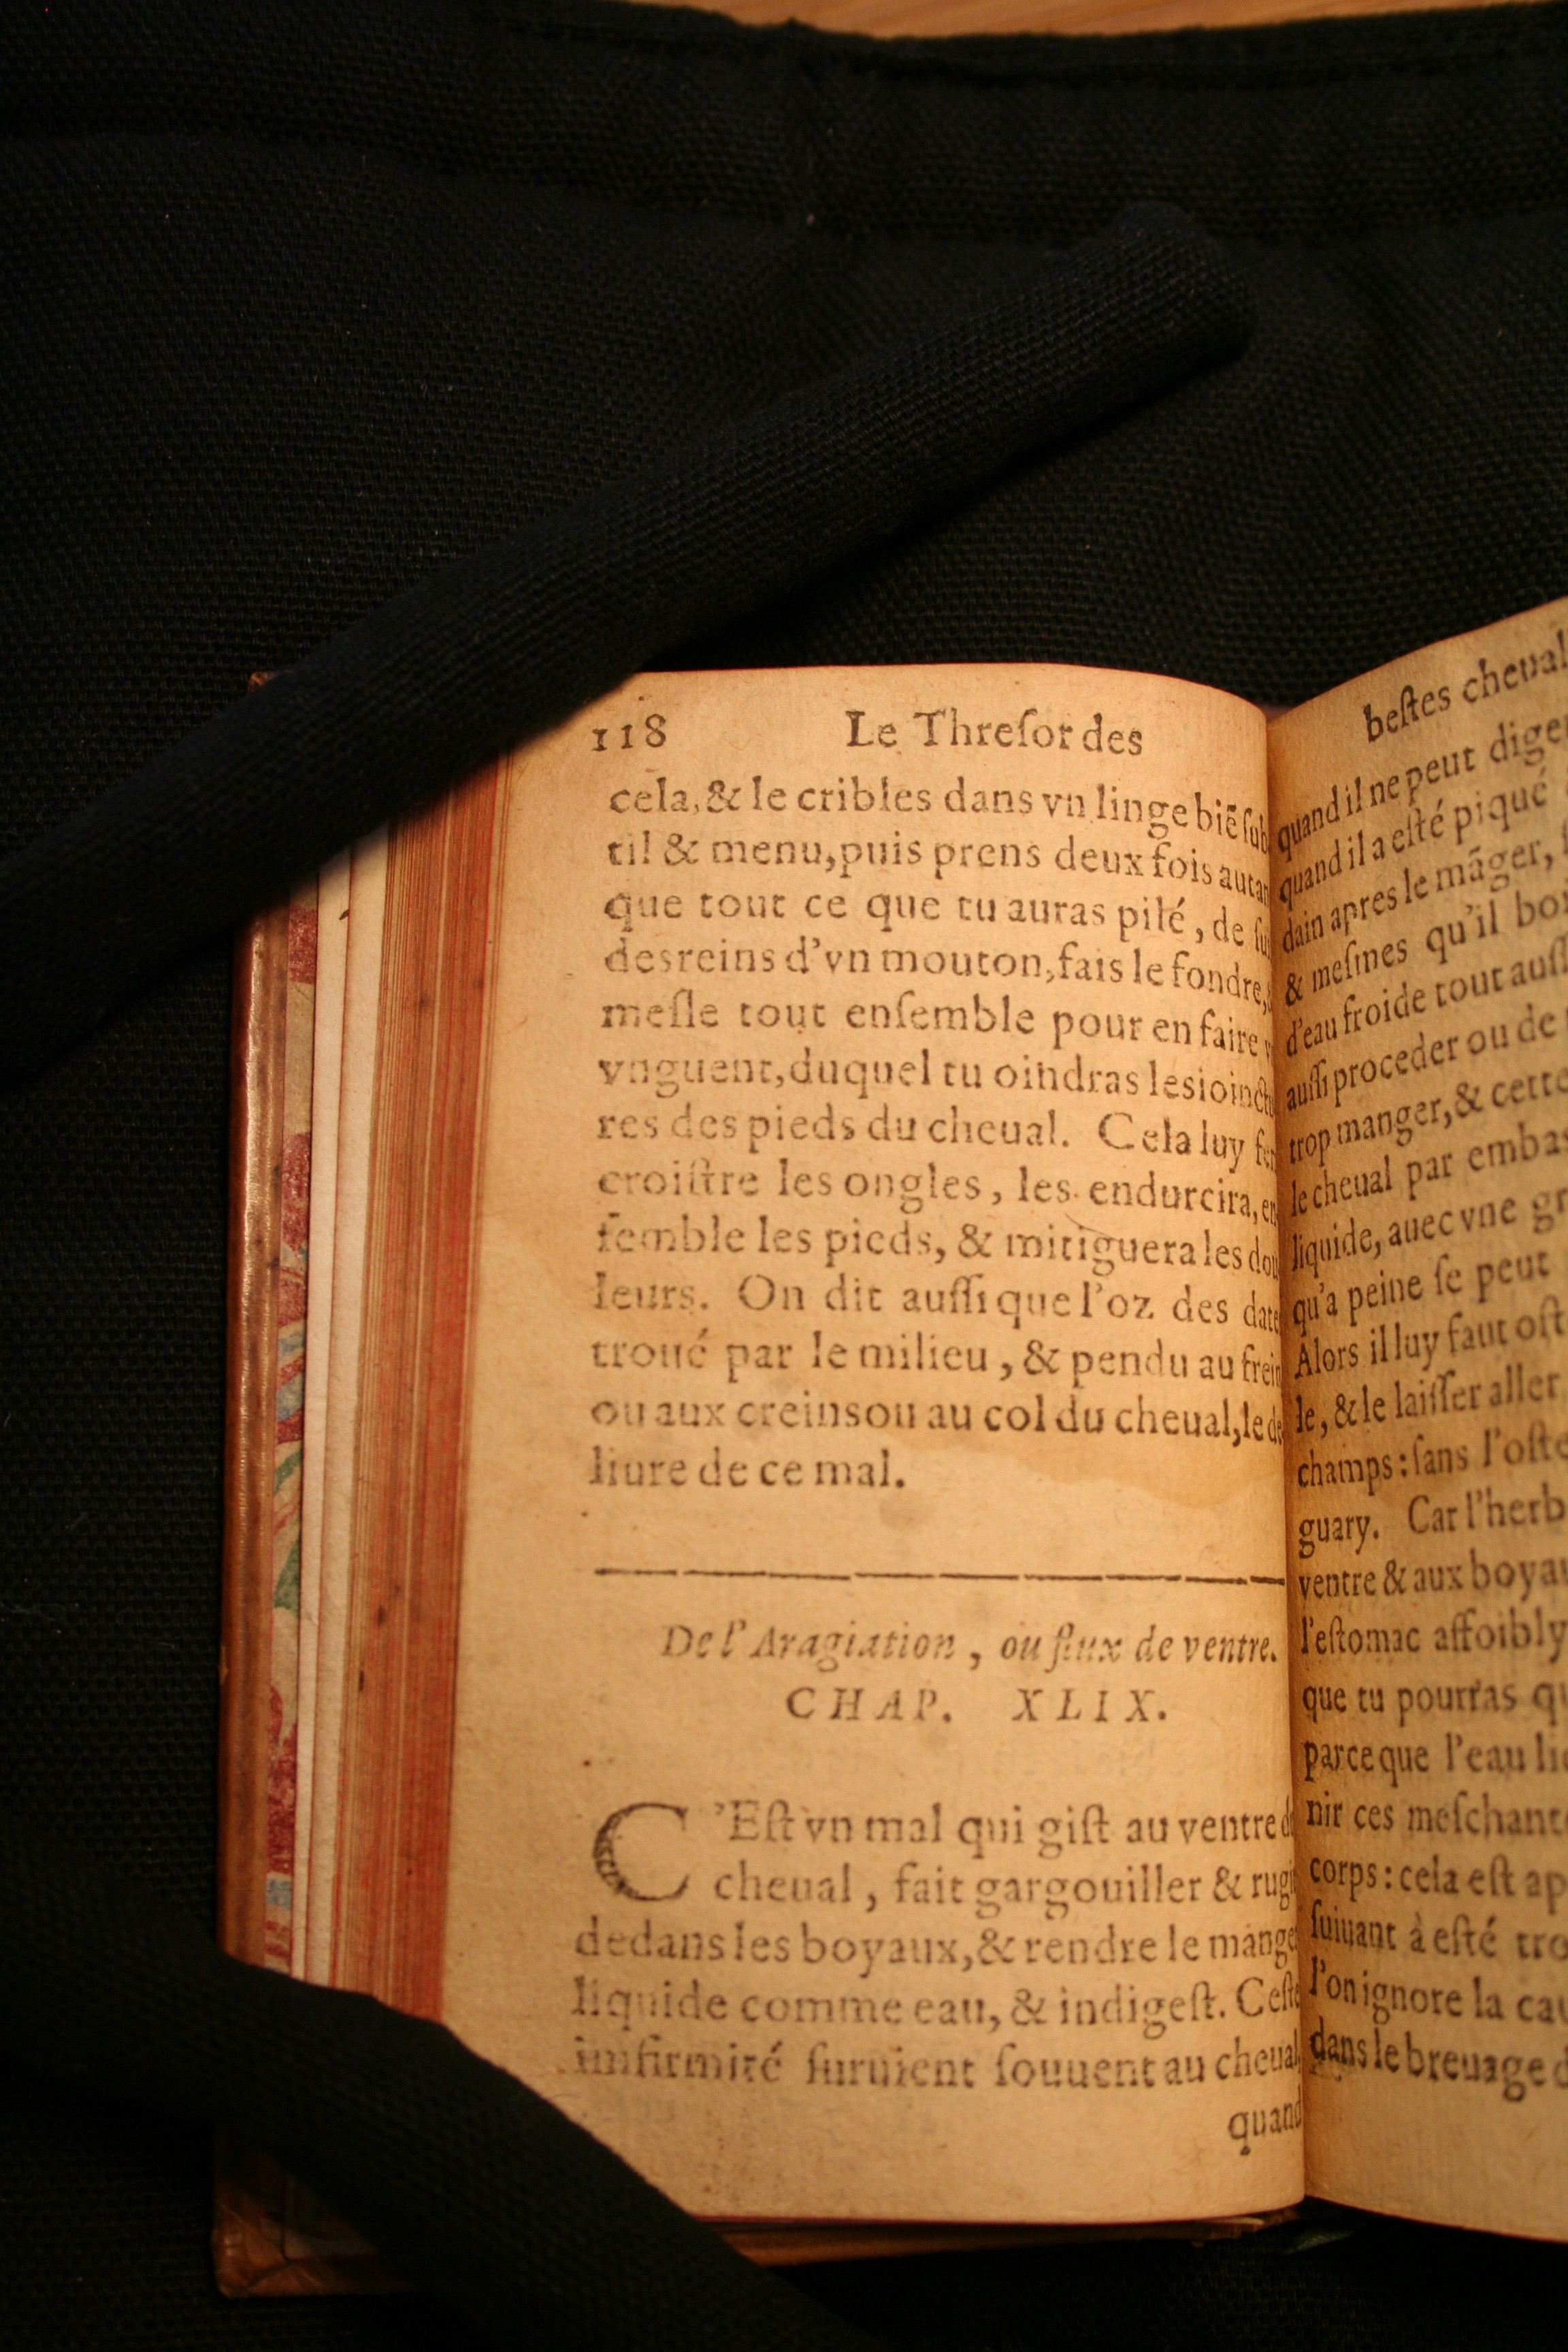 118 Le Threſor des
cela, & le cribles dans vn linge biē ſub
til & menu, puis prens deux fois autan
que tout ce que tu auras pilé, de ſu
des reins d'vn mouton, fais le fondre,
meſle tout enſemble pour en faire v
vnguent, duquel tu oindras les ioinctu
res des pieds du cheual. Cela luy fer
croiſtre les ongles, les endurcira, en
ſemble les pieds, & mitiguera les dou
leurs. On dit auſſi que l'oz des date
troué par le milieu, & pendu au frein
ou aux creins ou au col du cheual, le de
liure de ce mal.
De l'Aragiation, ou flux de ventre.
CHAP. XLIX.
C'Eſt vn mal qui giſt au ventre d
cheual, fait gargouiller & rugi
dedans les boyaux, & rendre le mange
liquide comme eau, & indigeſt. Ceſte
infirmité ſuruient ſouuent au cheual
quand
beſtes cheual
quand il ne peut diger
quand il a eſté piqué
dain apres le māger,
& meſmes qu'il boi
d'eau froide tout auſſ
auſſi proceder ou de
trop manger, & cette
le cheual par embas
liquide, auec vne gr
qu'a peine ſe peut
Alors il luy faut oſt
le, & le laiſſer aller
champs: ſans l'oſte
guary. Car l'herb
ventre & aux boyau
l'eſtomac affoibly
que tu pourras qu
parce que l'eau li
nir ces meſchante
corps: cela eſt ap
ſuiuant à eſté tro
l'on ignore la cau
dans le breuage d